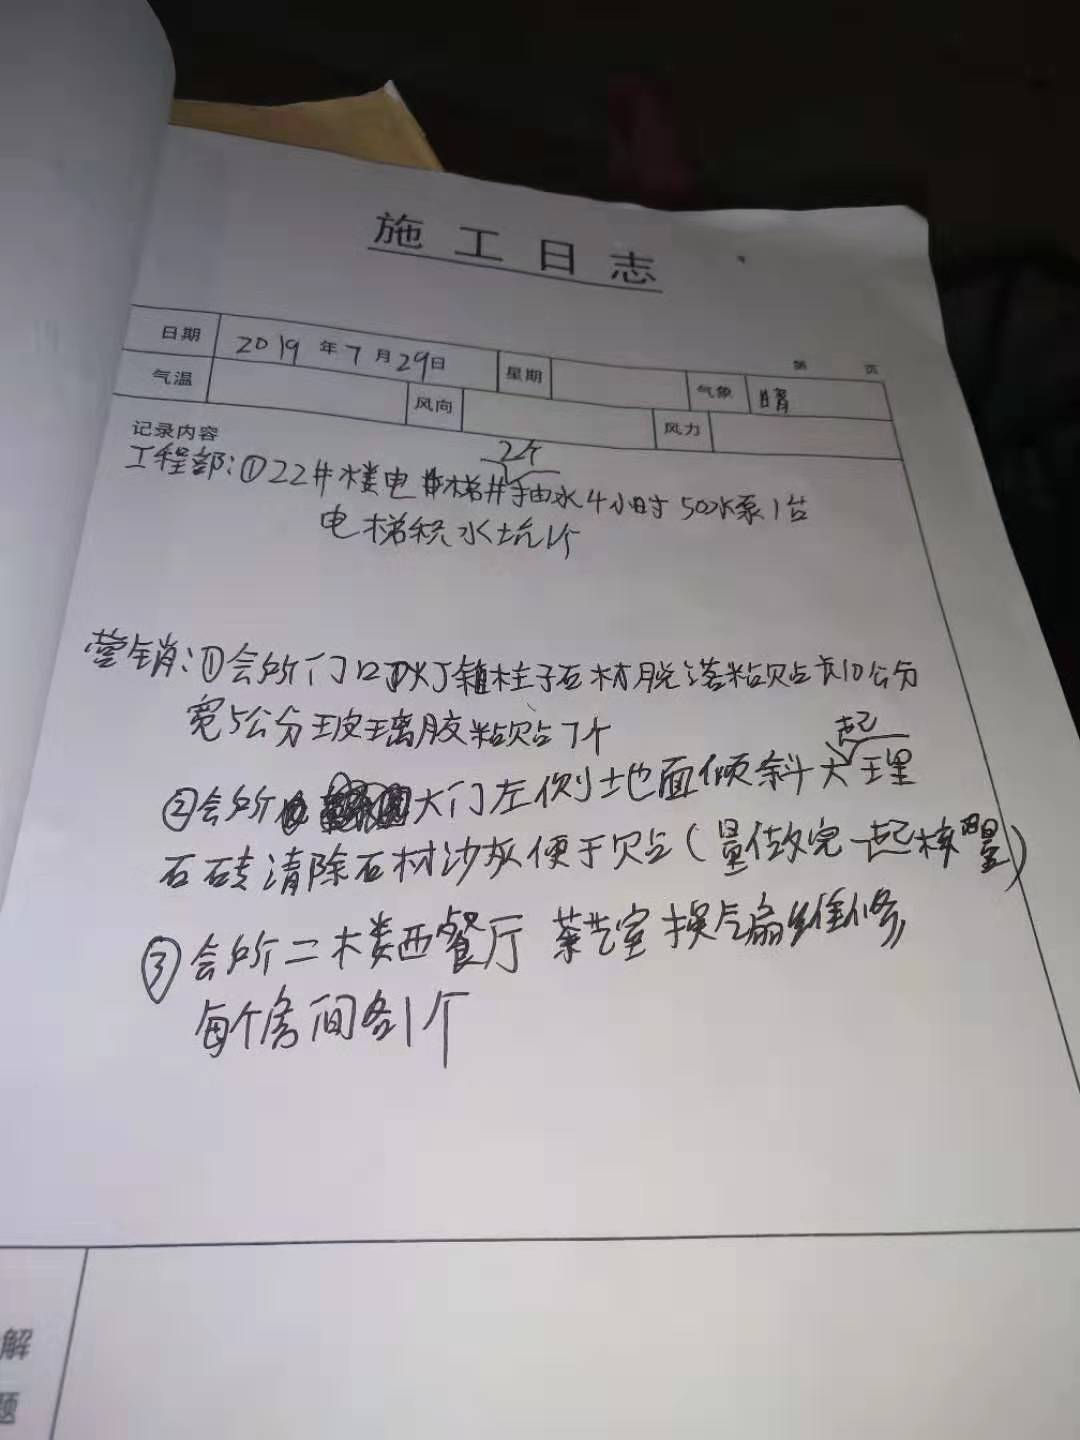 施工日志
第 页
日期 2019年7月29日 星期 气象 晴
气温 风向 风力
记录内容
2个
工程部:①22#楼电梯井抽水4小时 50水泵1台
电梯积水坑1个
营销:①会所门口灯箱柱子石材脱落粘贴长10公分
宽5公分玻璃胶粘贴7个
起
②会所大门左侧地面倾斜大理
石砖清除石材沙灰便于贴(量做完一起核量)
③会所二楼西餐厅 茶艺室换气扇维修
每个房间各1个
解
题